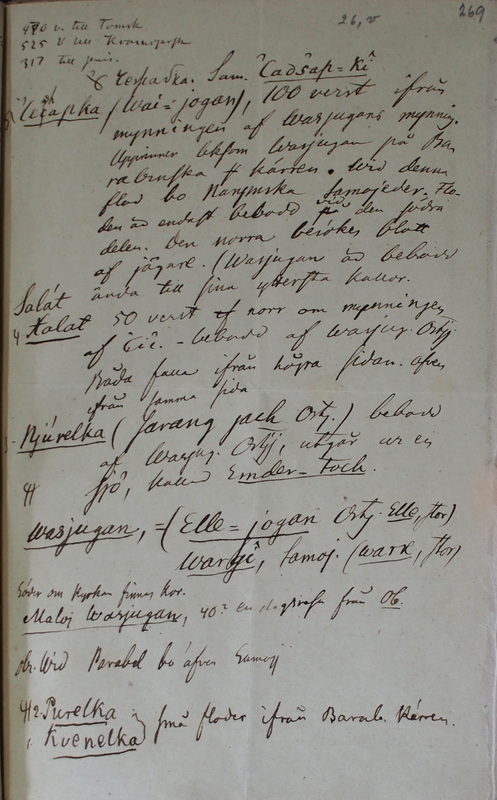 26, v
269
970 v. till Tomsk
525 V till Krasnojarsk
317 till
Чежапка. Sam. Čadšap=ki
Čežapka (Wai=jogan), 100 verst ifrån
mynningen af Wasjugans mynning.
Uppinner liksom Wasjugan på Ba
rabinska kärren. Wid denna
flod bo Narymska Samojeder. Flo-
den är endast bebodd vid den södra
delen. Den norra besökes blott
af jägare. (Wasjugan är bebodd
ända till sina yttersta källor.
Salát
4 Xalat 50 verst norr om mynningen
af Čič. - bebodd af Wasjug. Ostj.
Båda falla ifrån högra sidan. äfven
ifrån samma sida
Njúrelka (Jarang jach Ostj.) bebodd
af Wasjug. Ostj, utgår ur en
sjö, kallad Emder-Toch.
Wasjugan, =(Elle=jogan Ostj. Elle, stor)
Wargî, Samoj. (Wark, stor)
Söder om Kyrkan finnes Kor.
Maloj Wasjugan, 40 en dagsresa från Ob.
Obs. Wid Parabel bo äfven Samoj
2. Purelka
Kvenelka små floder ifrån Barab. Kärren.